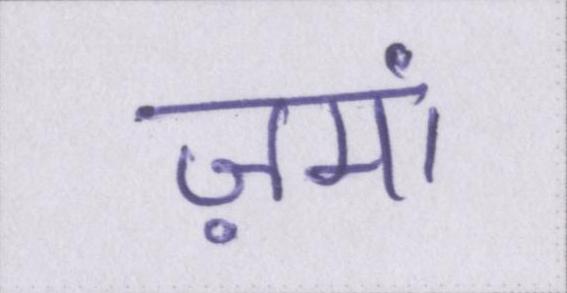 ज़मां